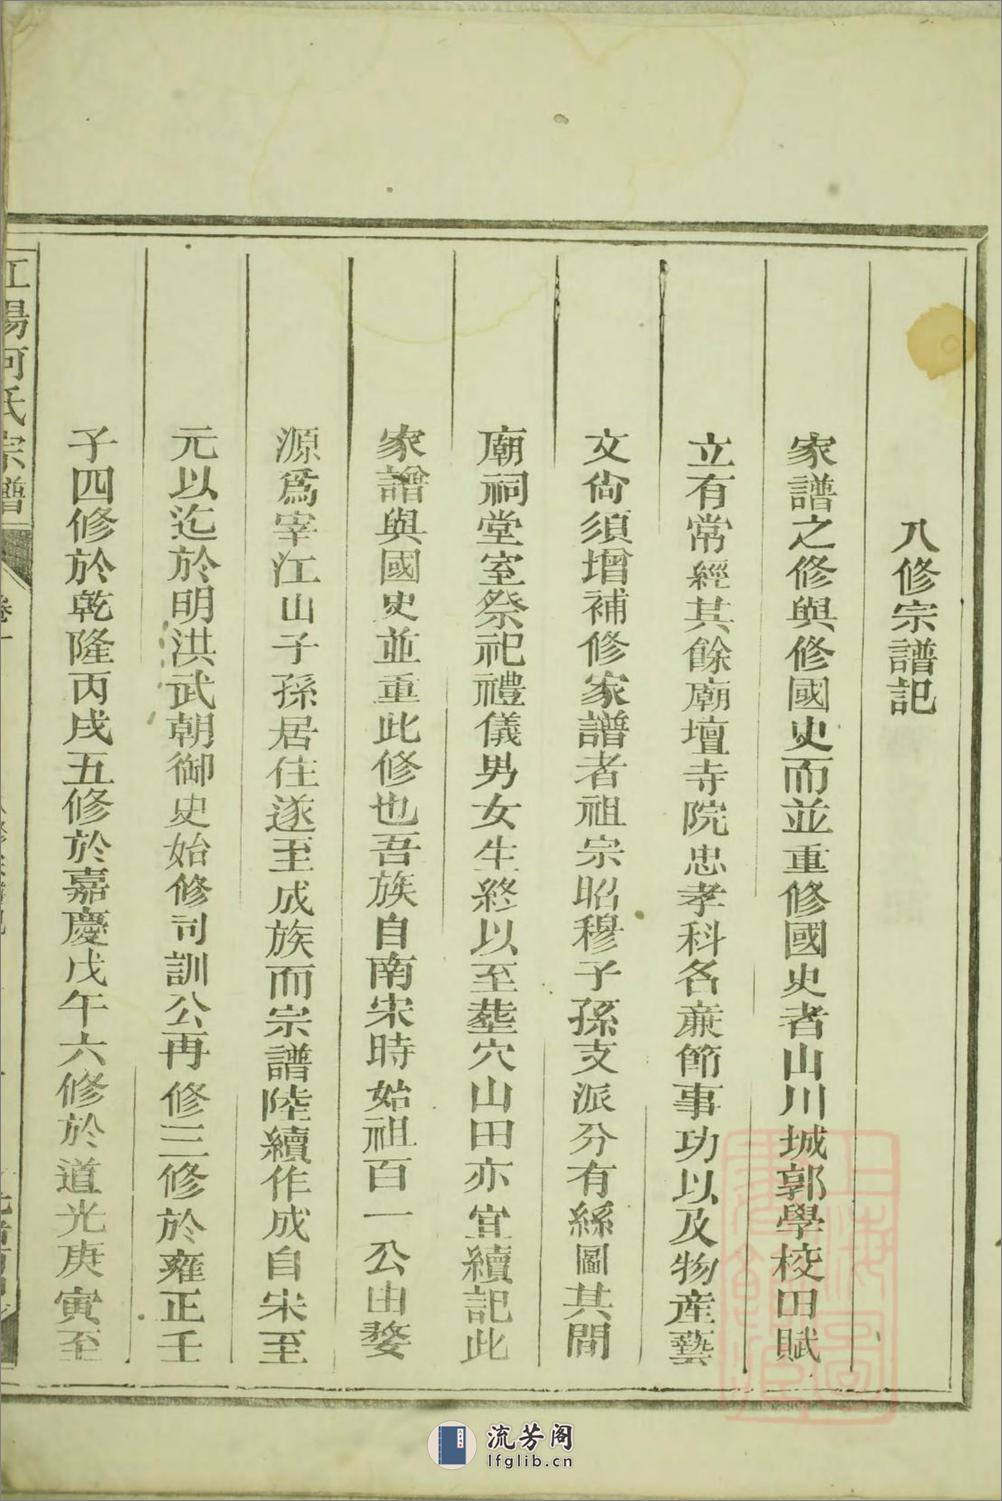 八修宗譜記
家譜之修與修國史而並重修國史者山川城郭學校田賦
立有常經其餘廟壇寺院忠孝科名亷節事功以及物產藝
文尙須增補修家譜者祖宗昭穆子孫支派分有綵圖其間
廟祠堂室祭祀禮儀男女生終以至塟穴山田亦宜續記此
家譜與國史並重此修也吾族自南宋時始祖百一公由婺
源爲宰江山子孫居住遂至成族而宗譜陸續作成自宋至
元以迄於明洪武朝御史始修司訓公再修三修於雍正壬
子四修於乾隆丙戌五修於嘉慶戊午六修於道光庚寅至
江陽何氏宗譜
卷一
上海圖書館藏
流芳阁
lfglib.cn